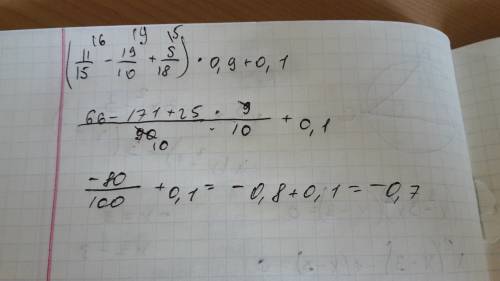 (11/15 ¹⁶ - 19/10 ¹⁹ + 5/18 ¹⁵) · 0,9 + 0,1
(66 - 171 + 25 · 9)/(90 10 · 10) + 0,1
-80/100 + 0,1 = -0,8 + 0,1 = -0,7